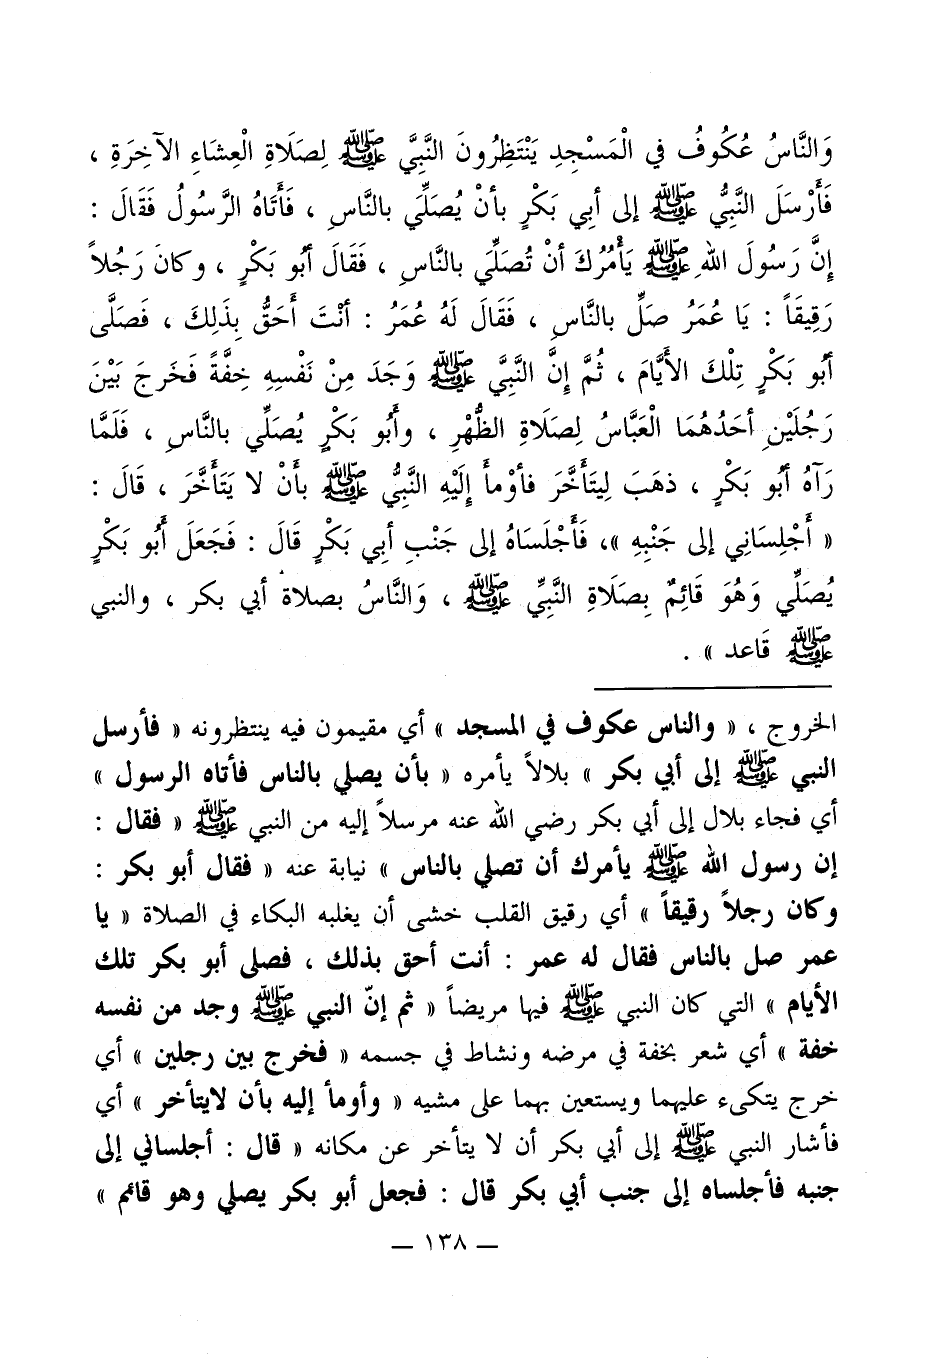 وَالنَّاسُ عُكُوفُ في الْمَسْجِدِ يَنْتَظِرُونَ النَّبِيَّ ﷺ لِصَلَاةِ الْعِشَاءِ الآخِرَةِ ،
فَأَرْسَلَ النَّبِيُّ ﷺ إلى أبِي بَكْرٍ بأنْ يُصَلِّي بالنَّاسِ ، فَأتَاهُ الرَّسُولُ فَقَالَ :
إنَّ رَسُولَ اللهِ ﷺ يَأْمُرُكَ أنْ تُصَلِّي بالنَّاسِ ، فَقَالَ أبُو بَكْرٍ ، وكانَ رَجُلاً
رَقِيقَاً : يَا عُمَرُ صَلِّ بالنَّاسِ ، فَقَالَ لَهُ عُمَرُ : أنْتَ أحَقُّ بِذَلِكَ ، فَصَلَّى
أبُو بَكْرٍ تِلْكَ الأيَّامَ ، ثُمَّ إنَّ النَّبِيَّ ﷺ وَجَدَ مِنْ نَفْسِهِ خِفَّةً فَخَرجَ بَيْنَ
رَجُلَيْنِ أحَدُهُمَا الْعَبَّاسُ لِصَلَاةِ الظُّهْرِ ، وأبُو بَكْرٍ يُصَلِّي بالنَّاسِ ، فَلَمَّا
رَآهُ أبُو بَكْرٍ ، ذهَبَ لِيَتَأَخَّرَ فأوْمأَ إلَيْهِ النَّبِيُّ ﷺ بأنْ لا يَتَأخَّرَ ، قَالَ :
« أَجْلِسَانِي إلى جَنْبِهِ »، فَأَجْلَسَاهُ إلى جَنْبِ أبِي بَكْرٍ قَالَ : فَجَعَلَ أبُو بَكْرٍ
يُصَلِّي وَهُوَ قَائِمٌ بِصَلَاةِ النَّبِيِّ ﷺ ، وَالنَّاسُ بصلاة أبي بكر ، والنبي
ﷺ قَاعد » .
الخروج ، « والناس عكوف في المسجد » أي مقيمون فيه ينتظرونه « فأرسل
النبي ﷺ إلى أبي بكر » بلالاً يأمره « بأن يصلي بالناس فأتاه الرسول »
أي فجاء بلال إلى أبي بكر رضي الله عنه مرسلاً إليه من النبي ﷺ « فقال :
إن رسول الله ﷺ يأمرك أن تصلي بالناس » نيابة عنه « فقال أبو بكر :
وكان رجلاً رقيقاً » أي رقيق القلب خشى أن يغلبه البكاء في الصلاة « يا
عمر صل بالناس فقال له عمر : أنت أحق بذلك ، فصلى أبو بكر تلك
الأيام » التي كان النبي ﷺ فيها مريضاً « ثم إنّ النبي ﷺ وجد من نفسه
خفة » أي شعر بخفة في مرضه ونشاط في جسمه « فخرج بين رجلين » أي
خرج يتكىء عليهما ويستعين بهما على مشيه « وأومأ إليه بأن لايتأخر » أي
فأشار النبي ﷺ إلى أبي بكر أن لا يتأخر عن مكانه « قال : أجلساني إلى
جنبه فأجلساه إلى جنب أبي بكر قال : فجعل أبو بكر يصلي وهو قائم »
— ١٣٨ —